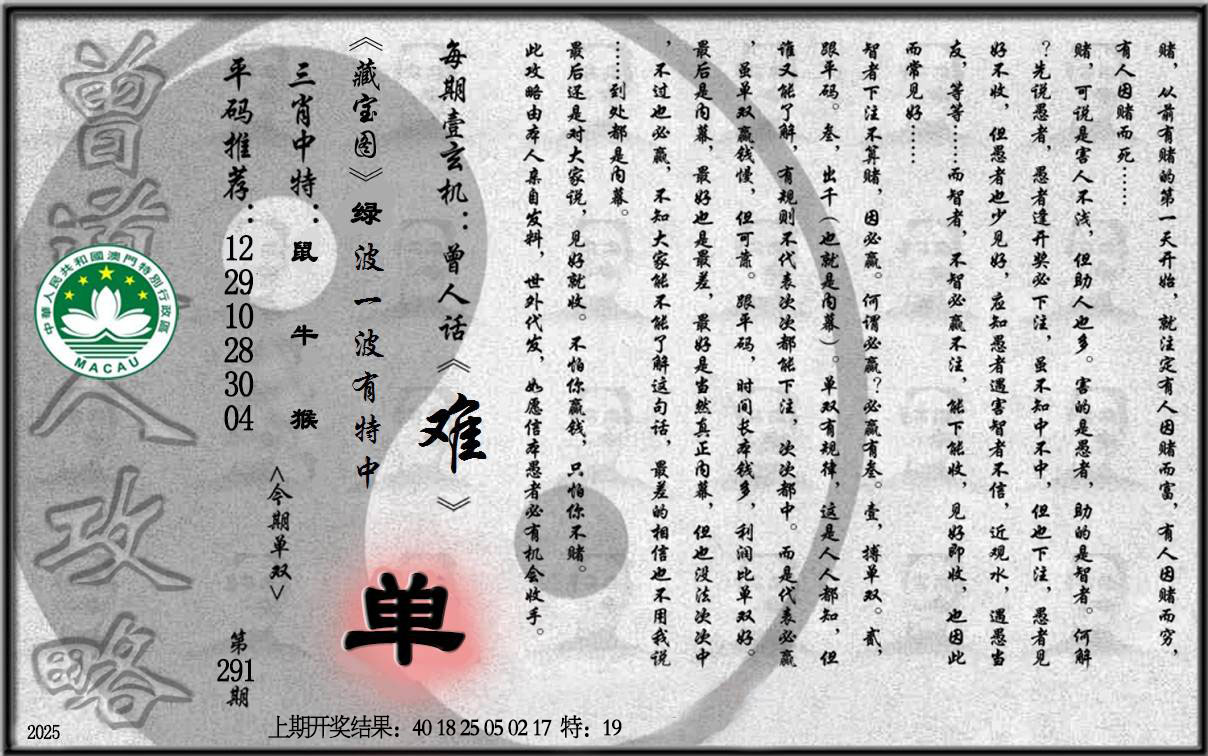 赌，从前有赌的第一天开始，就注定有人因赌而富，有人因赌而穷，
有人因赌而死……
赌，可说是害人不浅，但助人也多。害的是愚者，助的是智者。何解
？先说愚者，愚者逢开奖必下注，虽不知中不中，但也下注，愚者见
好不收，但愚者也少见好，应知愚者遇害智者不信，近观水，遇愚当
友，等等……而智者，不智必赢不注，能下能收，见好即收，也因此
而常见好……
智者下注不算赌，因必赢。何谓必赢？必赢有叁。壹，搏单双。贰，
跟平码。叁，出千（也就是内幕）。单双有规律，这是人人都知，但
谁又能了解，有规则不代表次次都能下注，次次都中。而是代表必赢
，虽单双赢钱慢，但可靠。跟平码，时间长本钱多，利润比单双好。
最后是内幕，最好也是最差，最好是当然真正内幕，但也没法次次中
，不过也必赢，不知大家能不能了解这句话，最差的相信也不用我说
……到处都是内幕。
最后还是对大家说，见好就收。不怕你赢钱，只怕你不赌。
此攻略由本人亲自发料，世外代发，如愿信本愚者必有机会收手。
每期壹玄机：曾人话《难》
《藏宝图》绿波一波有特中
单
三肖中特：鼠 牛 猴
<今期单双>
平码推荐：12 29 10 28 30 04
第291期
曾道人攻略
中華人民共和國澳門特別行政區
MACAU
2025
上期开奖结果：40 18 25 05 02 17 特：19